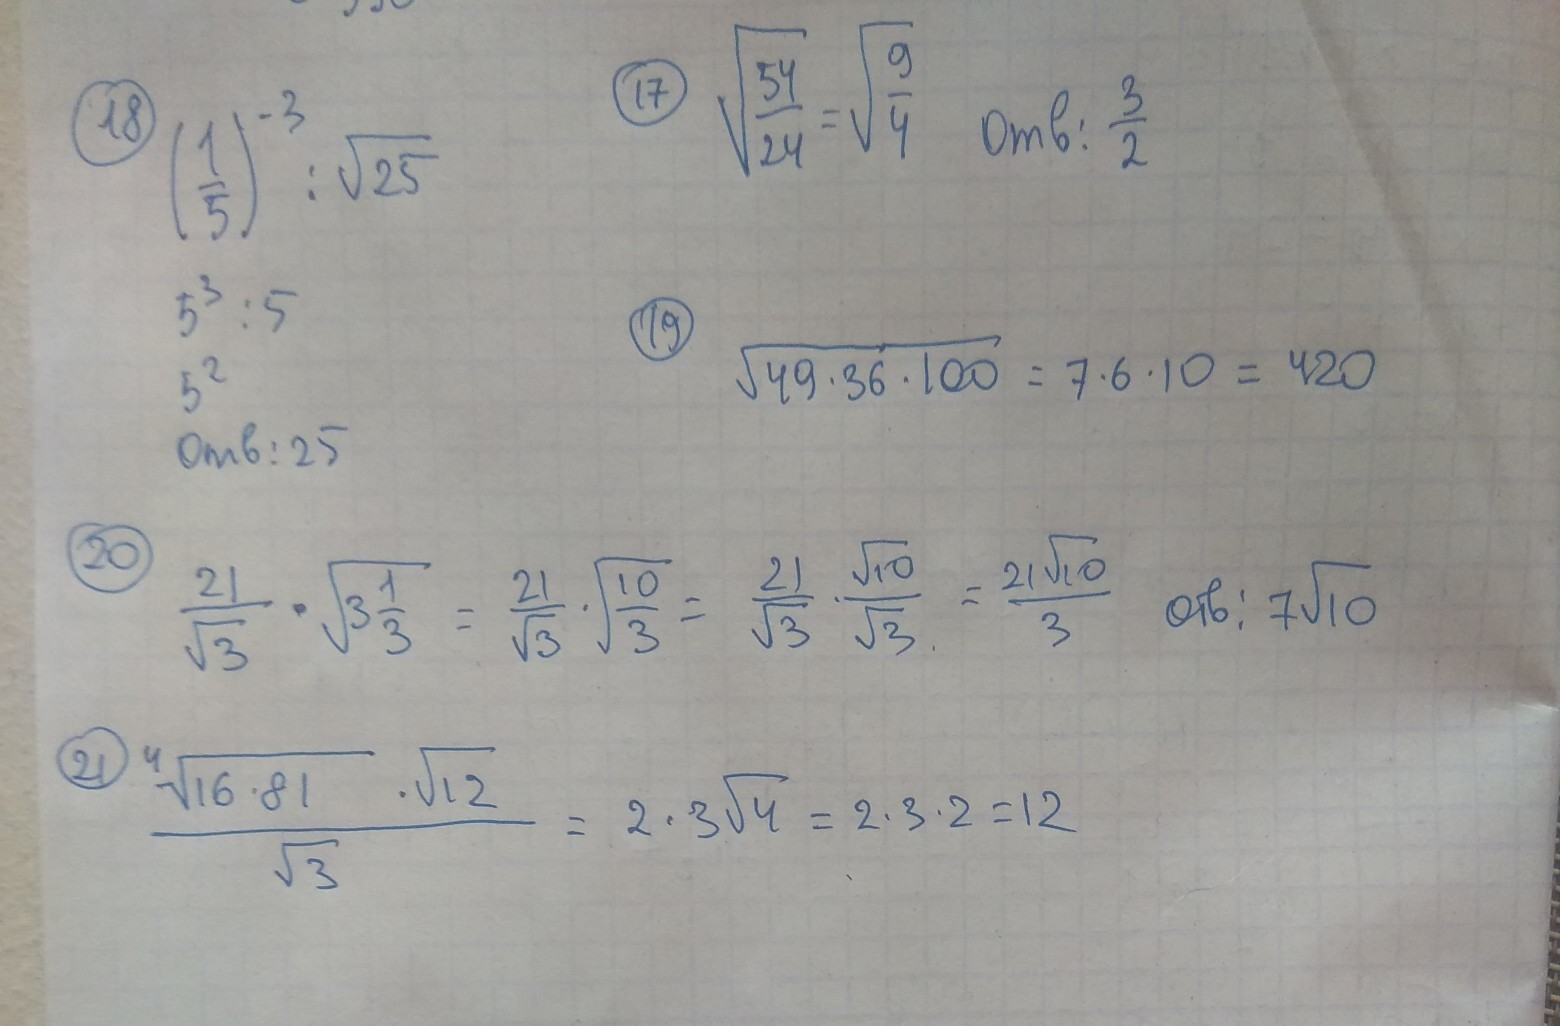 18 (1/5)^-3 : √25
5³ : 5
5²
Отв: 25
17 √(54/24) = √(9/4) Отв: 3/2
19 √(49·36·100) = 7·6·10 = 420
20 21/√3 · √(3 1/3) = 21/√3 · √(10/3) = 21/√3 · √10/√3 = 21√10/3 Отв: 7√10
21 (⁴√(16·81) · √12)/√3 = 2·3√4 = 2·3·2 = 12